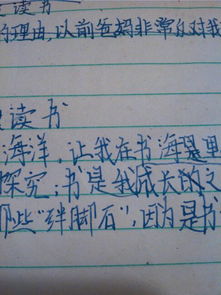 读书
的理由,以前爸妈非常反对我
读书
海洋,让我在书海里
探究;书是我成长的
那些“绊脚石”,因为是书